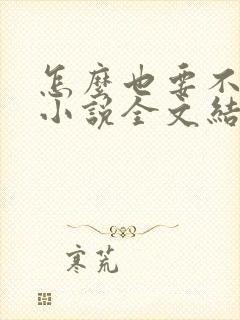 怎麼也要不
小說全文結
寒荒